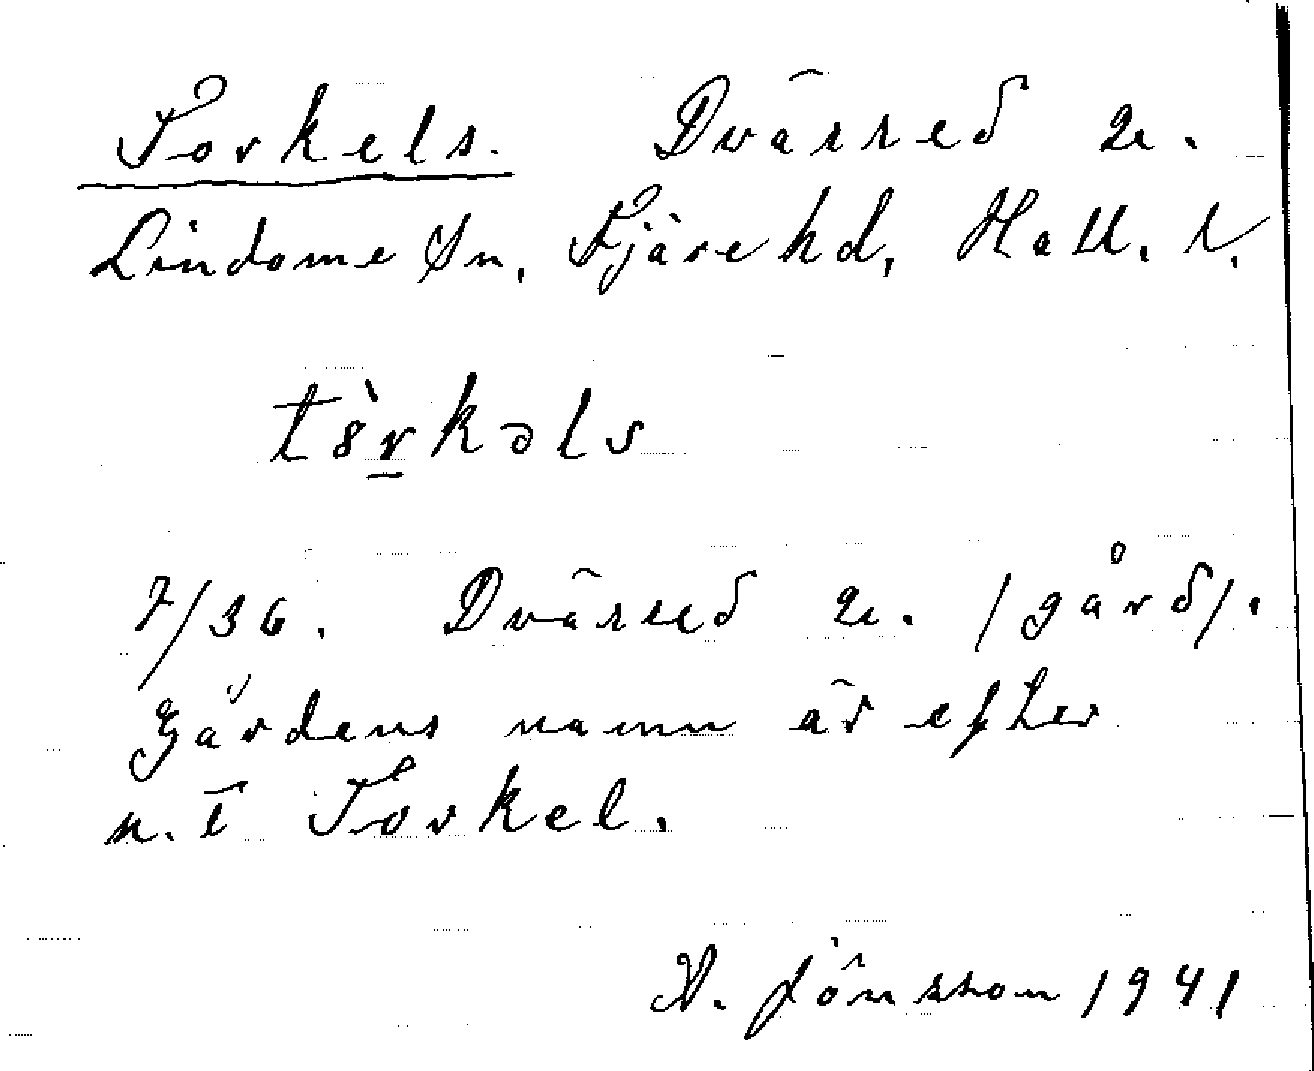 Torkels. Dvärred 2.
Lindome sn, Fjäre hd, Hall. l.
tȣ̀rkəls
7/36. Dvärred 2. /gård/.
Gårdens namn är efter
n. T Torkel.
A. Jönsson 1941